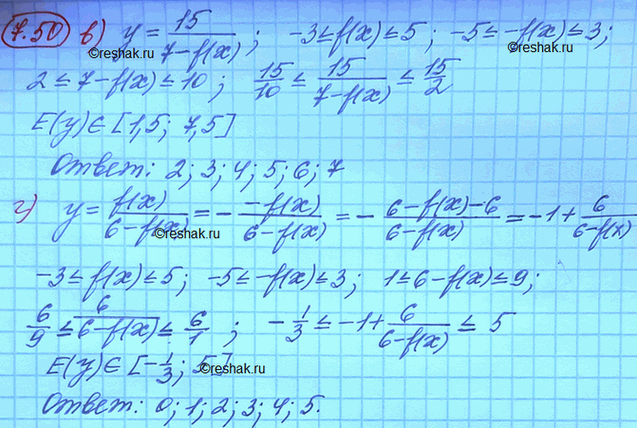 7.50 в) y = 15/(7-f(x)); -3≤f(x)≤5; -5≤-f(x)≤3;
©reshak.ru
©reshak.ru
2≤7-f(x)≤10; 15/10 ≤ 15/(7-f(x)) ≤ 15/2
E(y)∈[1,5; 7,5]
Ответ: 2; 3; 4; 5; 6; 7
г) y = f(x)/(6-f(x)) = - -f(x)/(6-f(x)) = - (6-f(x)-6)/(6-f(x)) = -1 + 6/(6-f(x))
©reshak.ru
-3≤f(x)≤5; -5≤-f(x)≤3; 1≤6-f(x)≤9;
6/9 ≤ 6/(6-f(x)) ≤ 6/1; -1/3 ≤ -1 + 6/(6-f(x)) ≤ 5
E(y)∈[-1/3; 5]
©reshak.ru
Ответ: 0; 1; 2; 3; 4; 5.